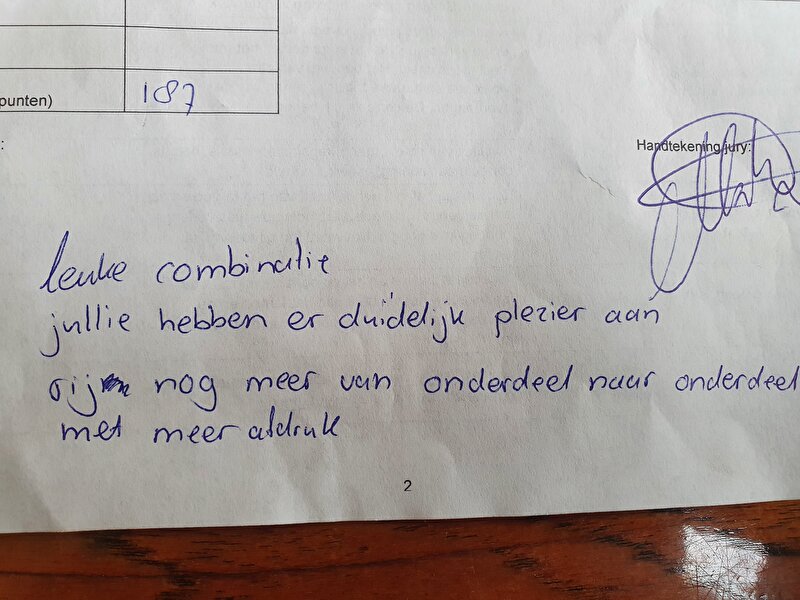 punten)
187
:
Handtekening jury:
leuke combinatie
jullie hebben er duidelijk plezier aan
rij nog meer van onderdeel naar onderdeel
met meer afdruk
2